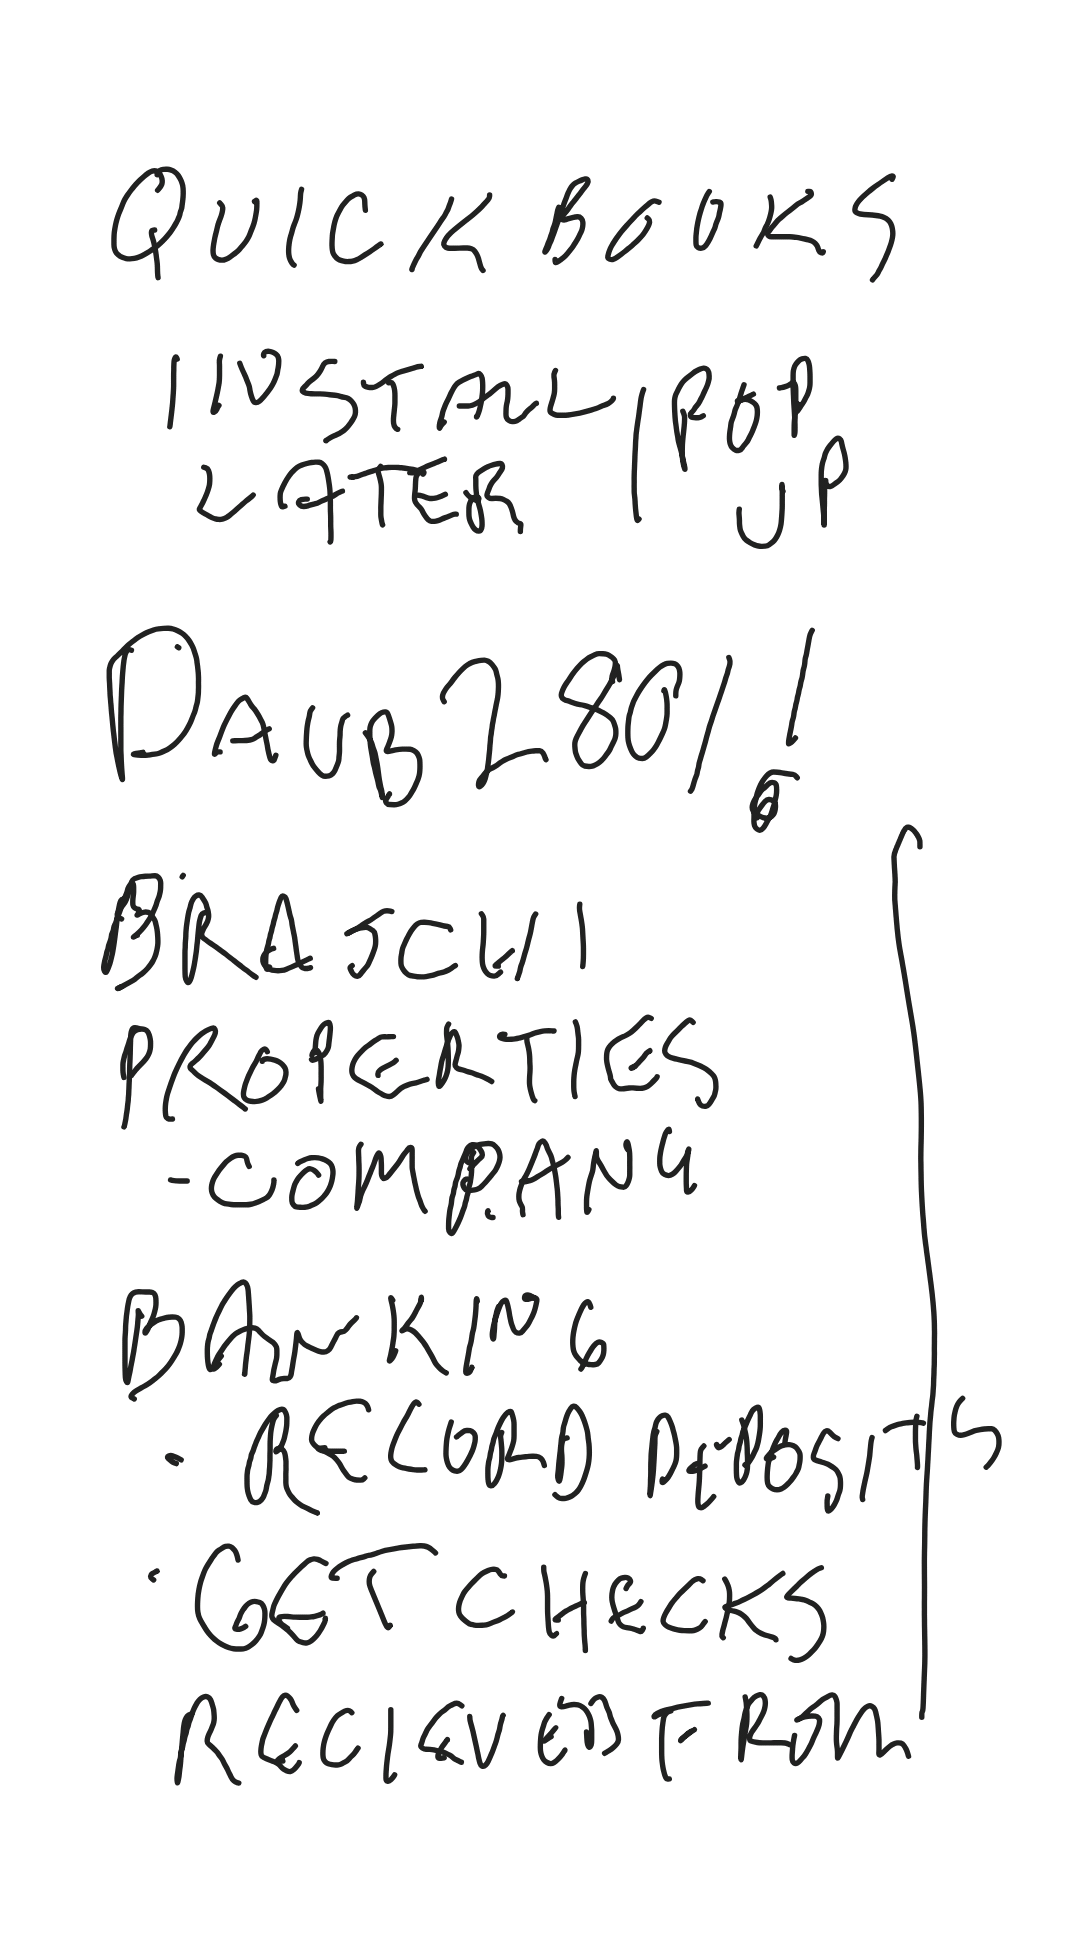 QUICK BOOKS
INSTALL / POP
LATER UP
DAUB280/!
BRASCHI
PROPERTIES
- COMPANY
BANKING
· RECORD DEPOSITS
· GET CHECKS
RECIEVED FROM